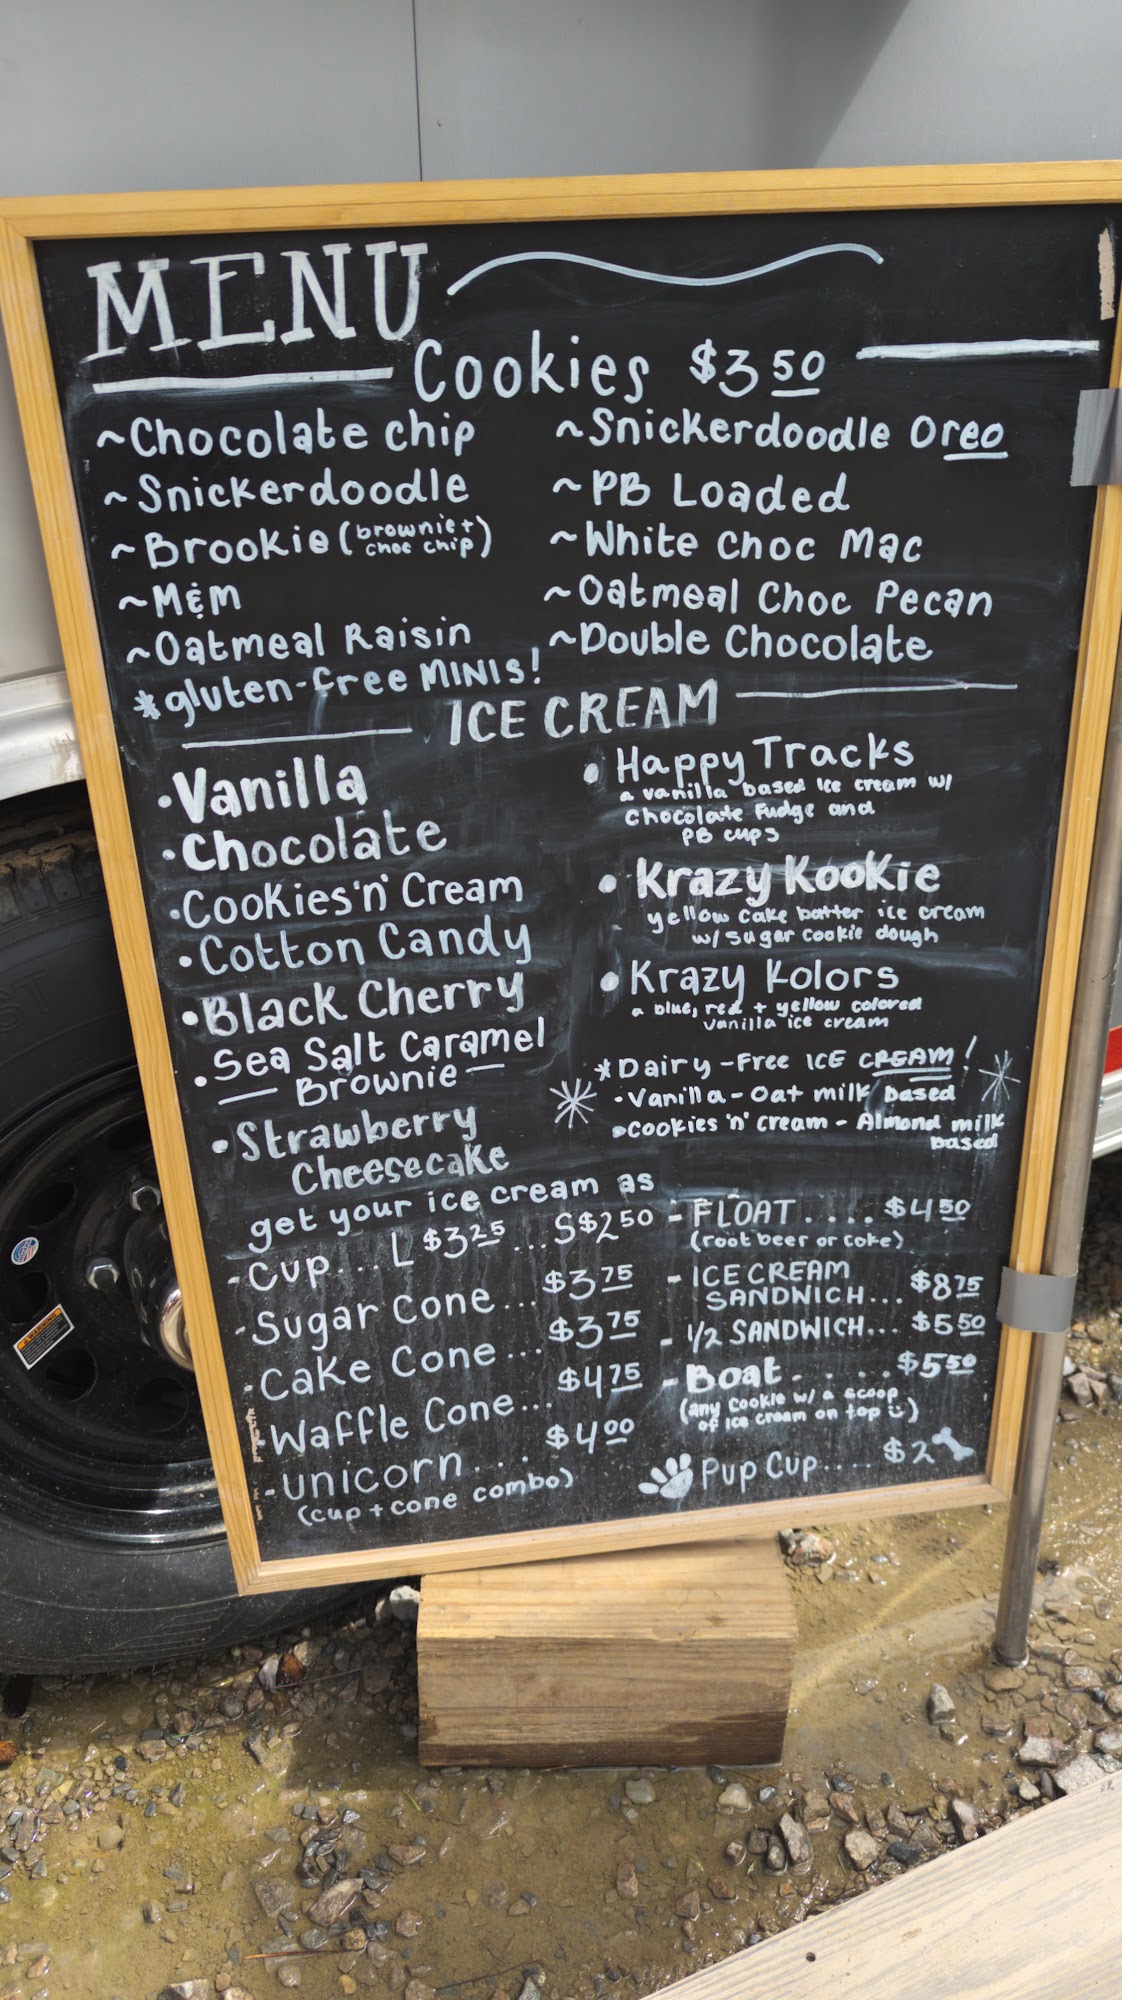 MENU
Cookies $3.50
~Chocolate chip
~Snickerdoodle
~Brookie (brownie +
choc chip)
~M&M
~Oatmeal Raisin
*gluten-free MINIS!
~Snickerdoodle Oreo
~PB Loaded
~White Choc Mac
~Oatmeal Choc Pecan
~Double Chocolate
ICE CREAM
•Vanilla
•Chocolate
•Cookies 'n' Cream
•Cotton Candy
•Black Cherry
•Sea Salt Caramel
— Brownie —
•Strawberry
Cheesecake
•Happy Tracks
a vanilla based Ice cream w/
chocolate Fudge and
PB cups
•Krazy Kookie
yellow cake batter ice cream
w/ sugar cookie dough
•Krazy Kolors
a blue, red + yellow colored
vanilla ice cream
*Dairy-Free ICE CREAM!
•Vanilla - Oat milk based
•Cookies 'n' Cream - Almond milk
based
get your ice cream as
-Cup... L $3.25... S $2.50
-Sugar Cone... $3.75
-Cake Cone... $3.75
-Waffle Cone... $4.75
-unicorn... $4.00
(cup + cone combo)
-FLOAT.... $4.50
(root beer or coke)
-ICE CREAM
SANDWICH... $8.75
-1/2 SANDWICH... $5.50
-Boat..... $5.50
(any cookie w/ a scoop
of ice cream on top)
Pup Cup.... $2
WARNING